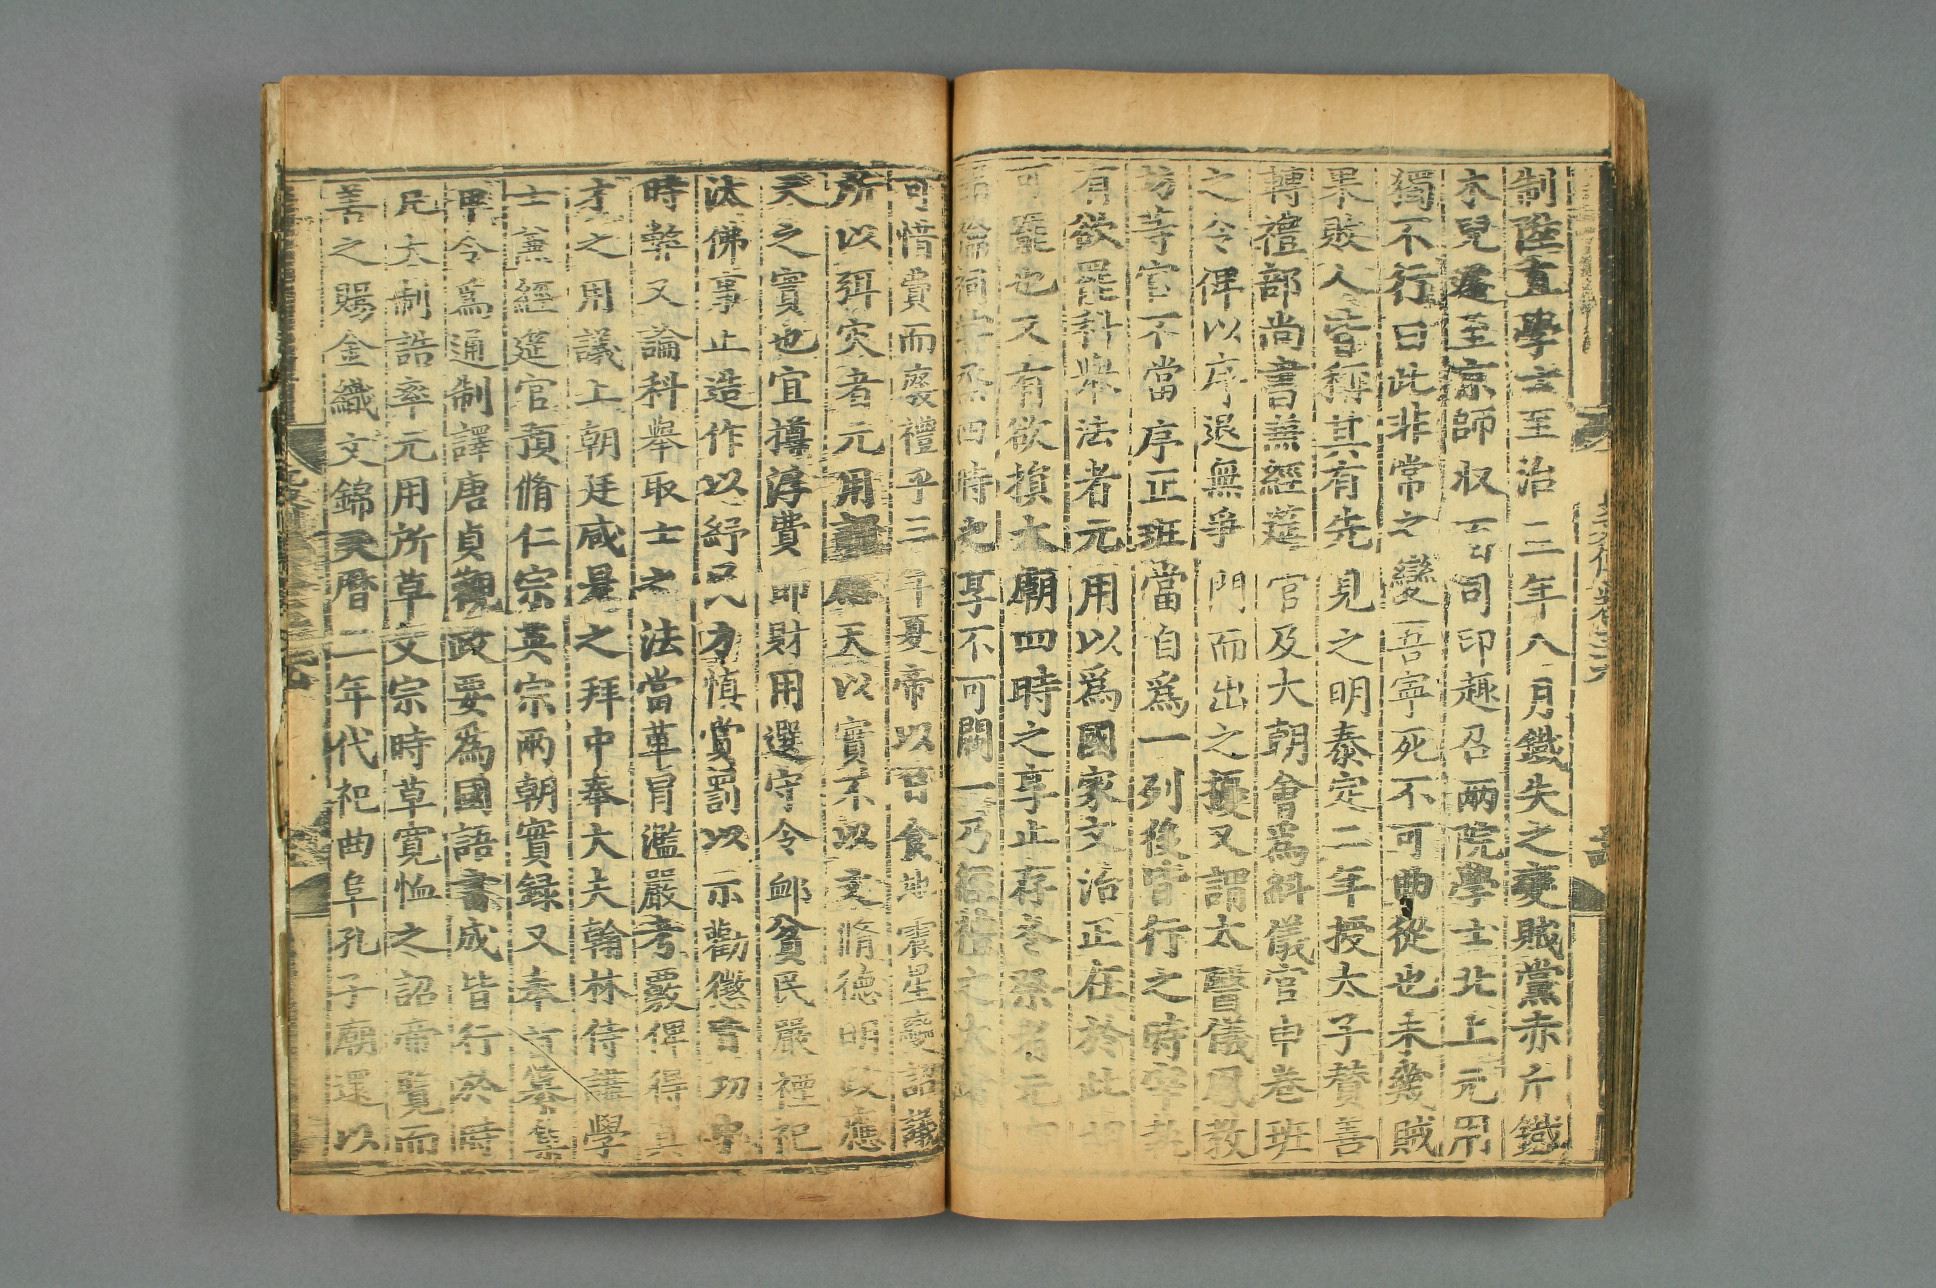 制陞直學士至治三年八月鐵失之變賊黨赤斤鐵
木兒遽至京師收百司印趣召兩院學士北上元用
獨不行曰此非常之變吾寧死不可曲從也未幾賊
果敗人皆稱其有先見之明泰定二年授太子贊善
轉禮部尚書兼經筵官及大朝會爲糾儀官申卷班
之令俾以序退無爭門而出之擾又謂太醫儀鳳教
坊等官不當序正班當自爲一列後皆行之時宰執
有欲罷科舉法者元用以爲國家文治正在於此胡
可罷也又有欲損太廟四時之享止存冬祭者元
禘祫四時之享不可闕一乃經禮之大
可惜費而廢禮乎三年夏帝以日食地震星變詔議
所以弭灾者元用謂應天以實不以文脩德明政應
天之實也宜撙浮費節財用選守令卹貧民嚴禋祀
汰佛事止造作以紓民力慎賞罰以示勸懲皆切中
時弊又論科舉取士之法當革冒濫嚴考覈俾得真
才之用議上朝廷咸是之拜中奉大夫翰林侍講學
士兼經筵官預脩仁宗英宗兩朝實錄又奉旨纂集
甲令爲通制譯唐貞觀政要爲國語書成皆行於時
凡大制誥率元用所草文宗時草寬恤之詔帝覽而
善之賜金織文錦天曆二年代祀曲阜孔子廟還以